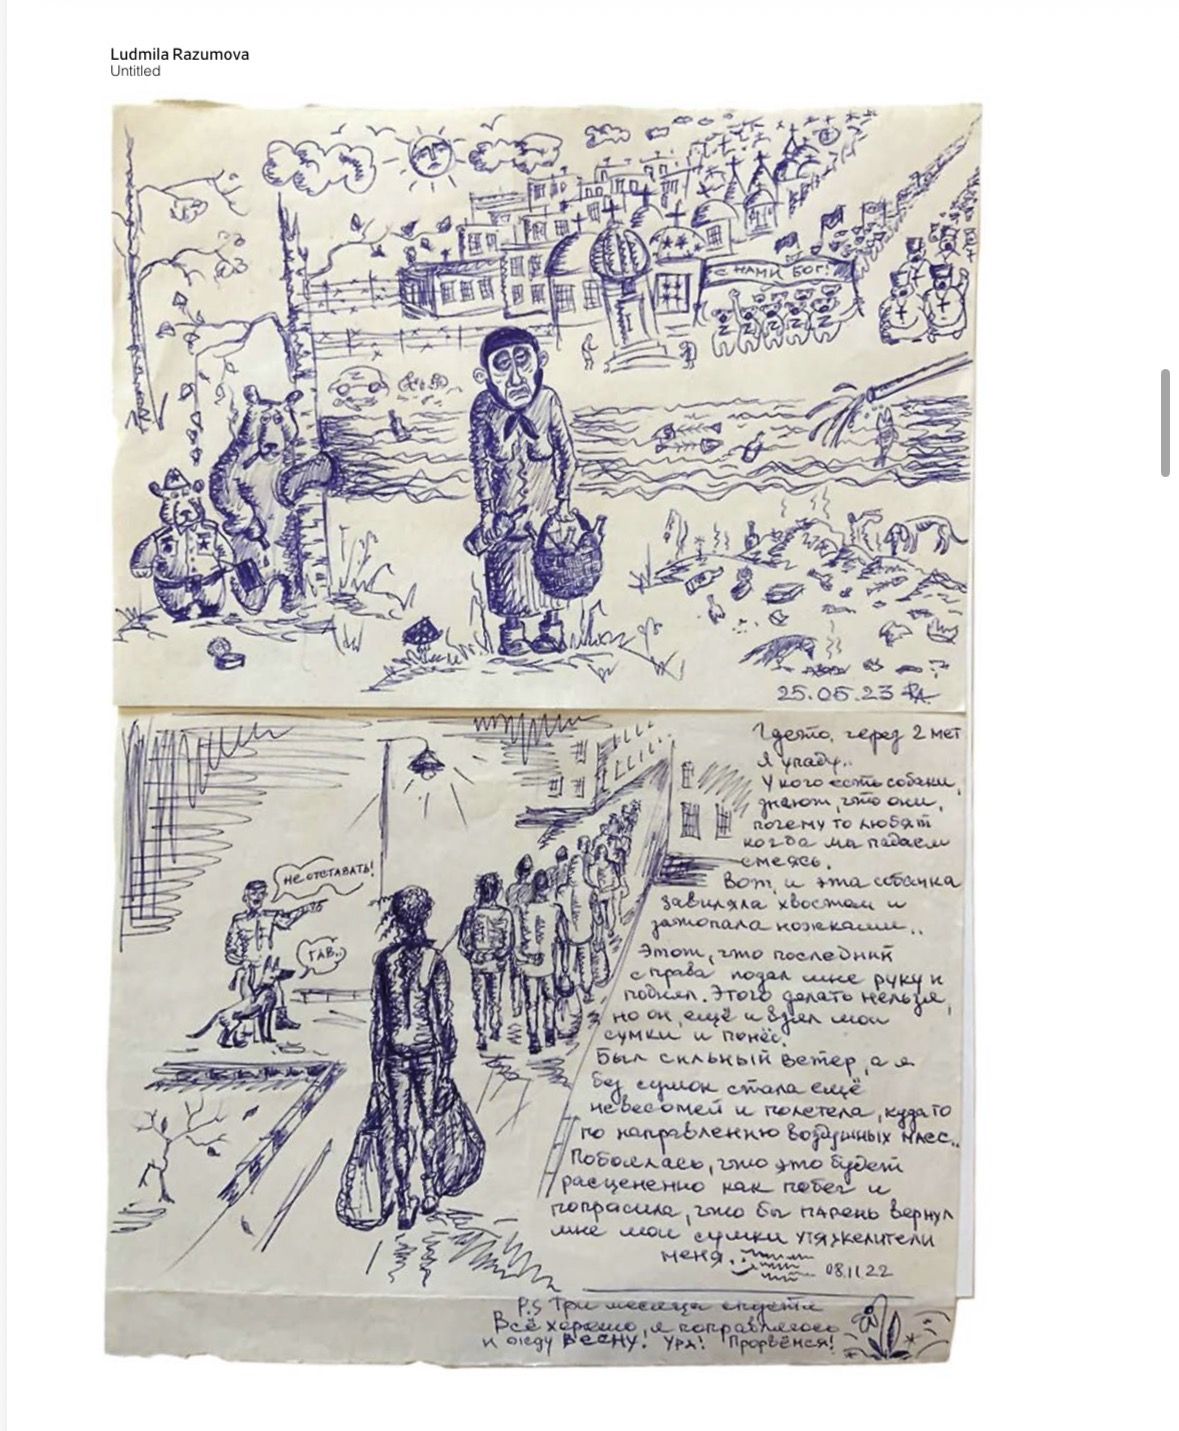 Ludmila Razumova
Untitled
С НАМИ БОГ!
Z Z Z Z
25.05.23
Гдето, через 2 мет
я упаду..
У кого есть собаки,
знают, что они,
почему то любят
когда мы падаем
смеясь.
Вот, и эта собачка
завиляла хвостом и
затопала ножками..
НЕ ОТСТАВАТЬ!
ГАВ..
Этот, что последний
справа подал мне руку и
поднял. Этого делать нельзя,
но он, ещё и взял мои
сумки и понёс.
Был сильный ветер, а я
без сумок стала ещё
невесомей и полетела, куда то
по направлению воздушных масс..
Побоялась, что это будет
расценено как побег и
попросила, что бы парень вернул
мне мои сумки утяжелители
меня.
08.11.22
P.S Три месяца спустя
Всё хорошо, я поправляюсь
и жду ВЕСНУ! Ура! Прорвёмся!